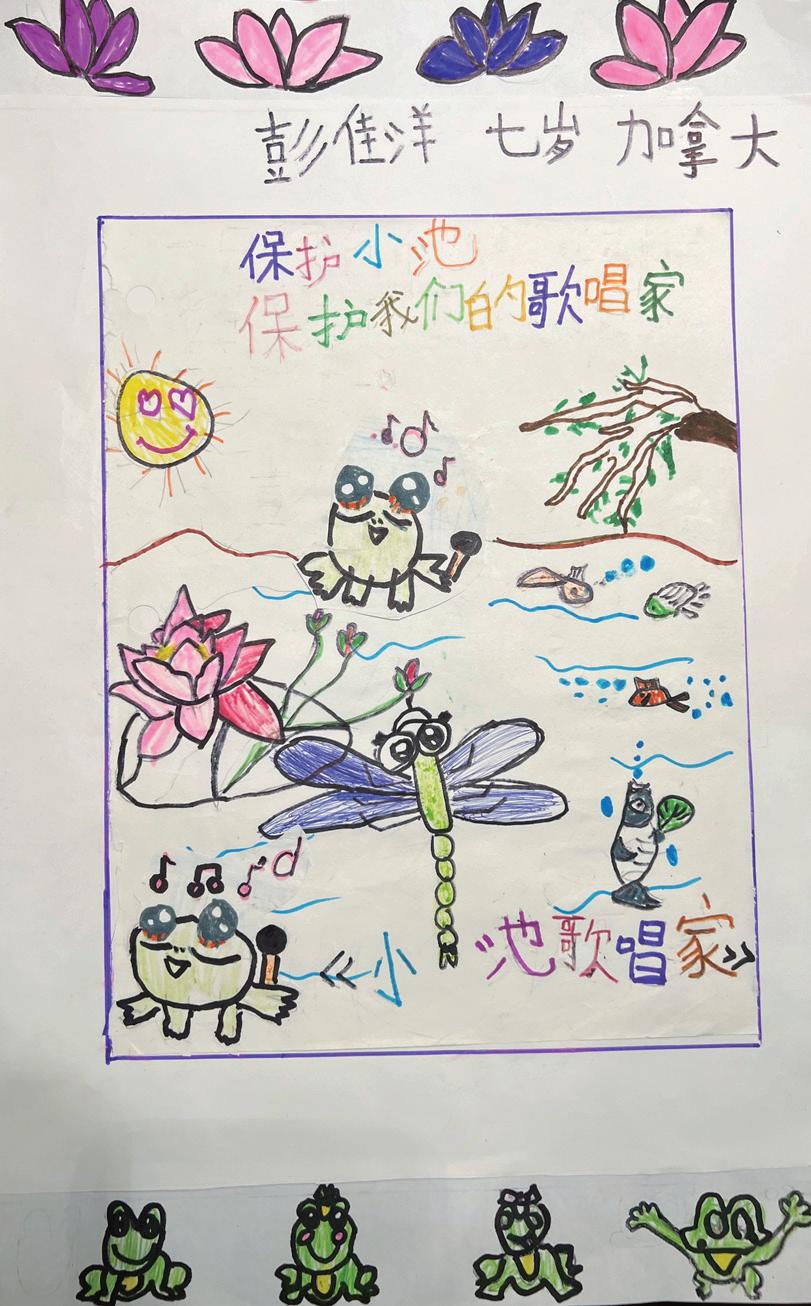 彭佳洋 七岁 加拿大
保护小池
保护我们的歌唱家
《小池歌唱家》